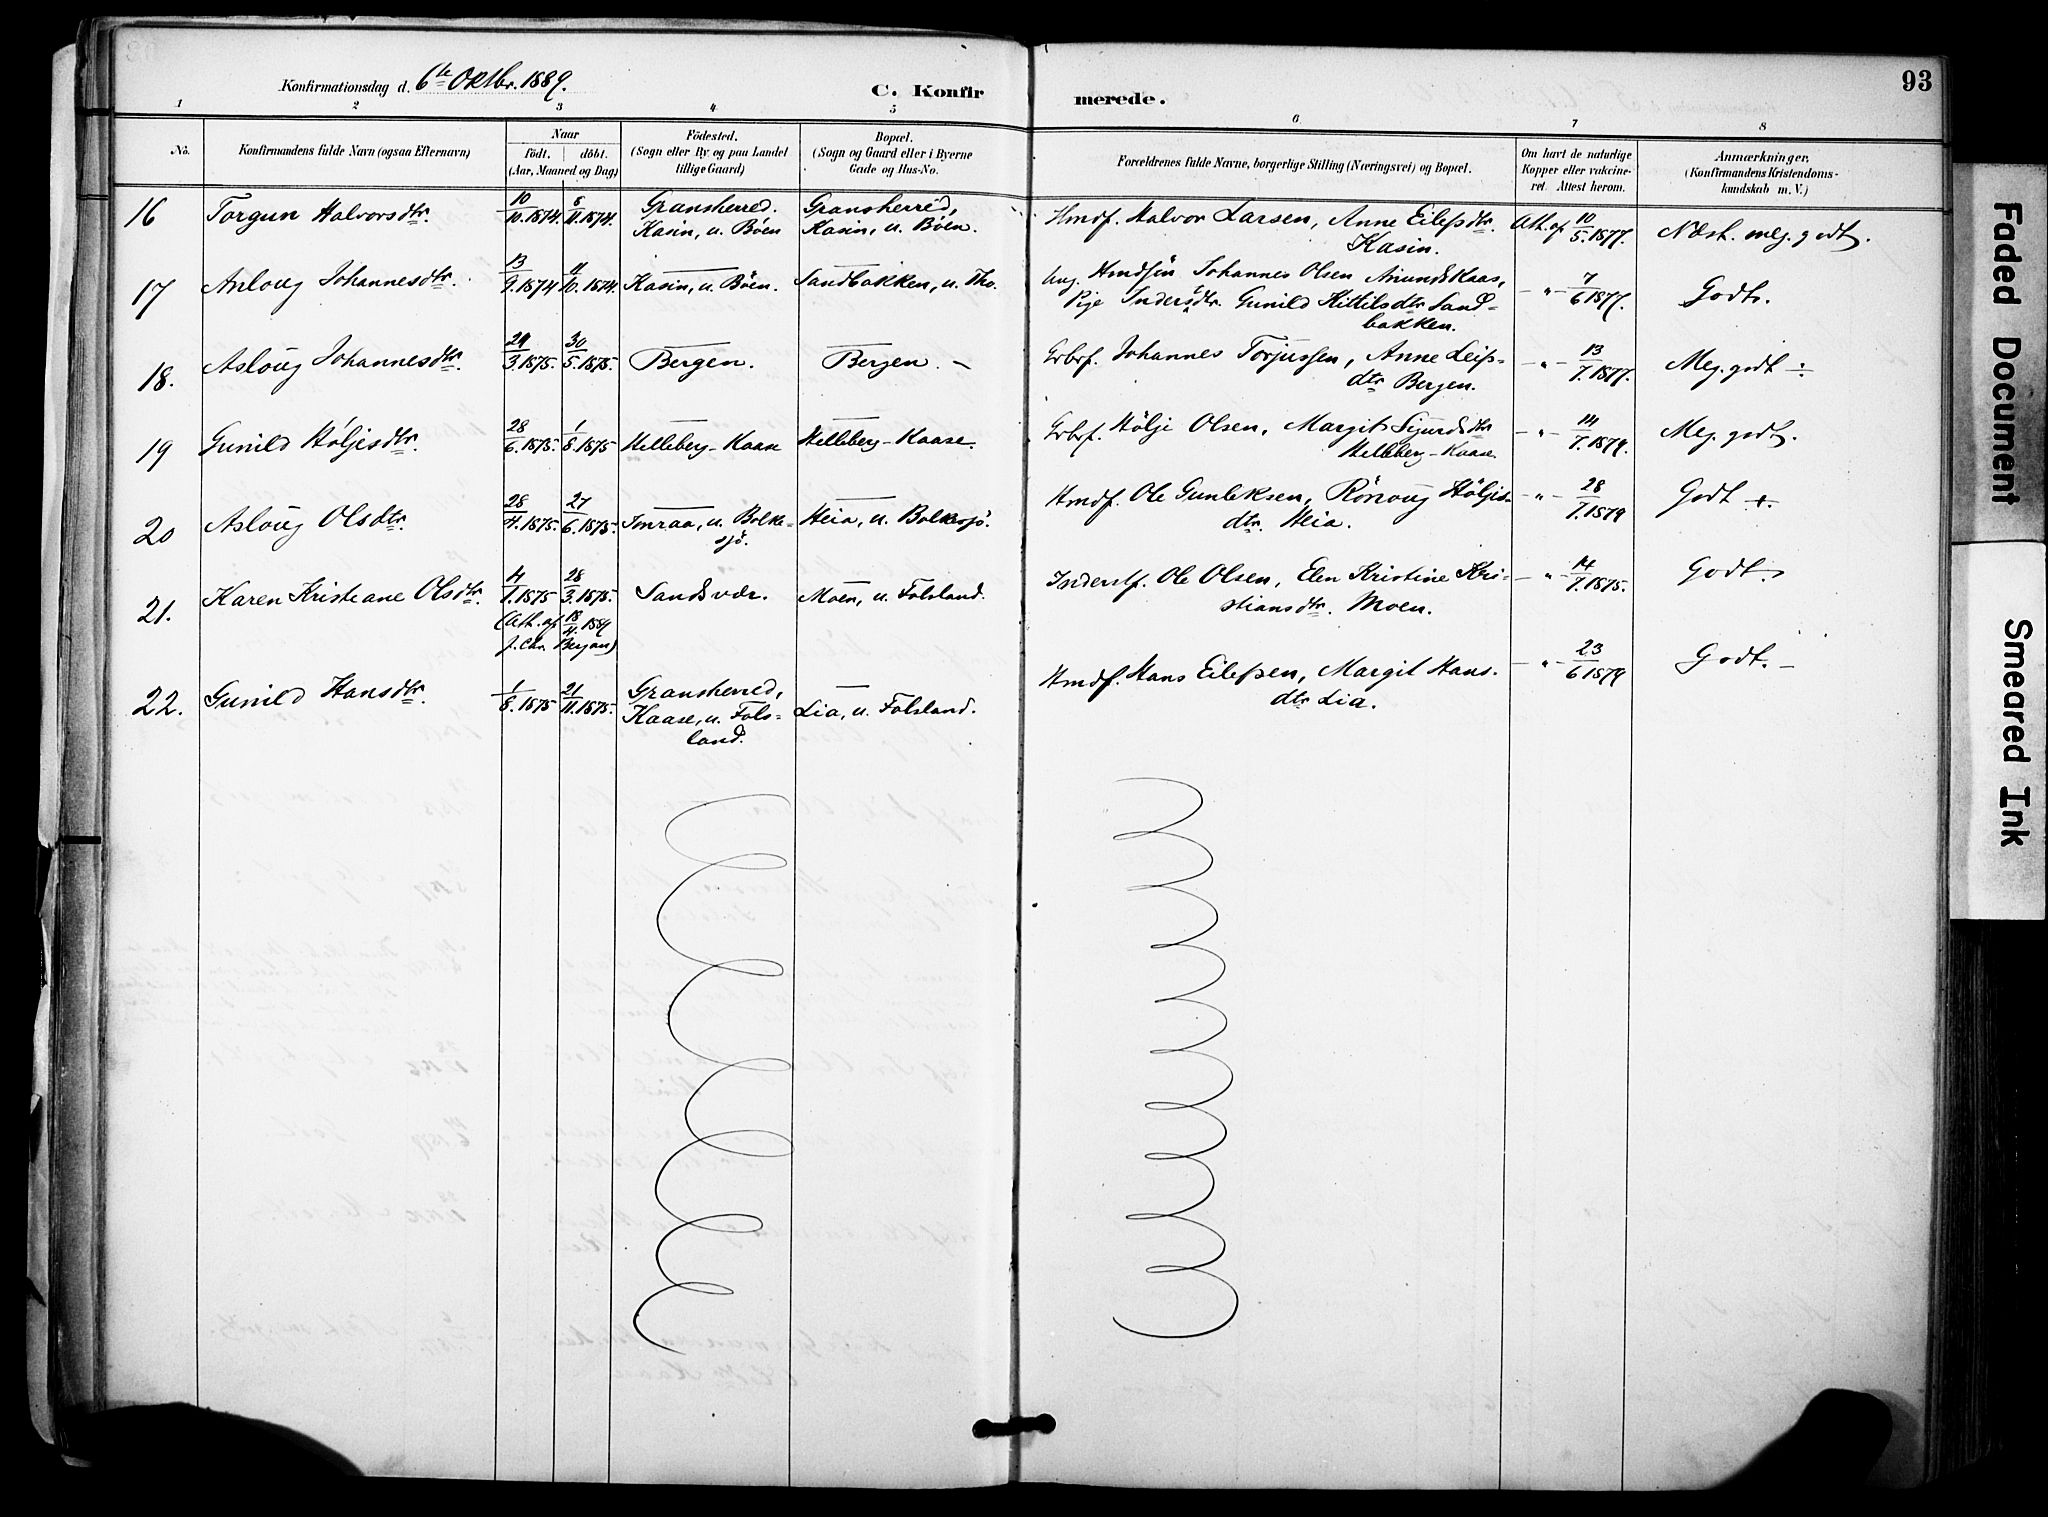 Konfirmationsdag d. 6te Oktbr. 1889.
C. Konfirmerede.
93
1 2 3 4 5 6 7 8
No.
Konfirmandens fulde Navn (ogsaa Efternavn)
Naar
født. døbt.
(Aar, Maaned og Dag)
Födested.
(Sogn eller By og paa Landet
tillige Gaard)
Bopæl.
(Sogn og Gaard eller i Byerne
Gade og Hus-No.
Forældrenes fulde Navne, borgerlige Stilling (Næringsvei) og Bopæl.
Om havt de naturlige
Kopper eller vakcine-
ret. Attest herom.
Anmærkninger.
(Konfirmandens Kristendoms-
kundskab m. V.)
16 Torgun Halvorsdtr. 10/10.1874. 11.1874. Gransherred. Gransherred, Hmdf. Halvor Larsen, Anne Eilefsdtr. Att. af 10/5.1877. Næst. meg. godt.
Kasin, u. Bøen Kasin, u. Bøen. Kasin.
17 Johannesdtr. 13/9.1874 11/10.1874 Kasin, u. Bøen. Sandbakken, u. Tho. Ung. Hmdsøn Johannes Olsen Amundskaas, -"- 7/6 1877. Godt.
Pige Indersdtr. Gunild Kittilsdtr Sand-
bakken.
18. Asloug Johannesdtr. 29/3.1875. 30/5.1875. Bergen. Bergen. - Grbrf. Johannes Torjussen, Anne Leifs- -"- 13/7.1877. Meg. godt ÷
dtr Bergen.
19 Gunild Høljesdtr. 28/6.1875. 1/8.1875 Helleberg-Kaase Helleberg-Kaase. Grbrf. Hølje Olsen, Margit Sigurdsdtr -"- 14/7.1879. Meg. godt.
Helleberg-Kaase.
20 Asloug Olsdtr. 28/4.1875. 27/6.1875. Imraa, u. Bolke- Heia, u. Bolkesjø. Hmdf. Ole Gunleksen, Rønoug Høljes- -"- 28/7.1879 Godt +.
sjø. dtr. Heia.
21. Karen Kristiane Olsdtr. 1.1875 28/3.1875. Sandsvær. Moen, u. Folsland. Inderstf. Ole Olsen, Elen Kristine Kri- -"- 14/7.1875. Godt.
(Att. af 18/4.1889 stiansdtr. Moen.
J. Chr. Berjan)
22. Gunild Hansdtr. 1/8.1875 21/11.1875. Gransherred, Lia, u. Folsland. Hmdf. Hans Eilefsen, Margit Hans- -"- 23/6 1879 Godt. -
Kaase, u. Fols- dtr Lia.
land.
Faded Document
Smeared Ink